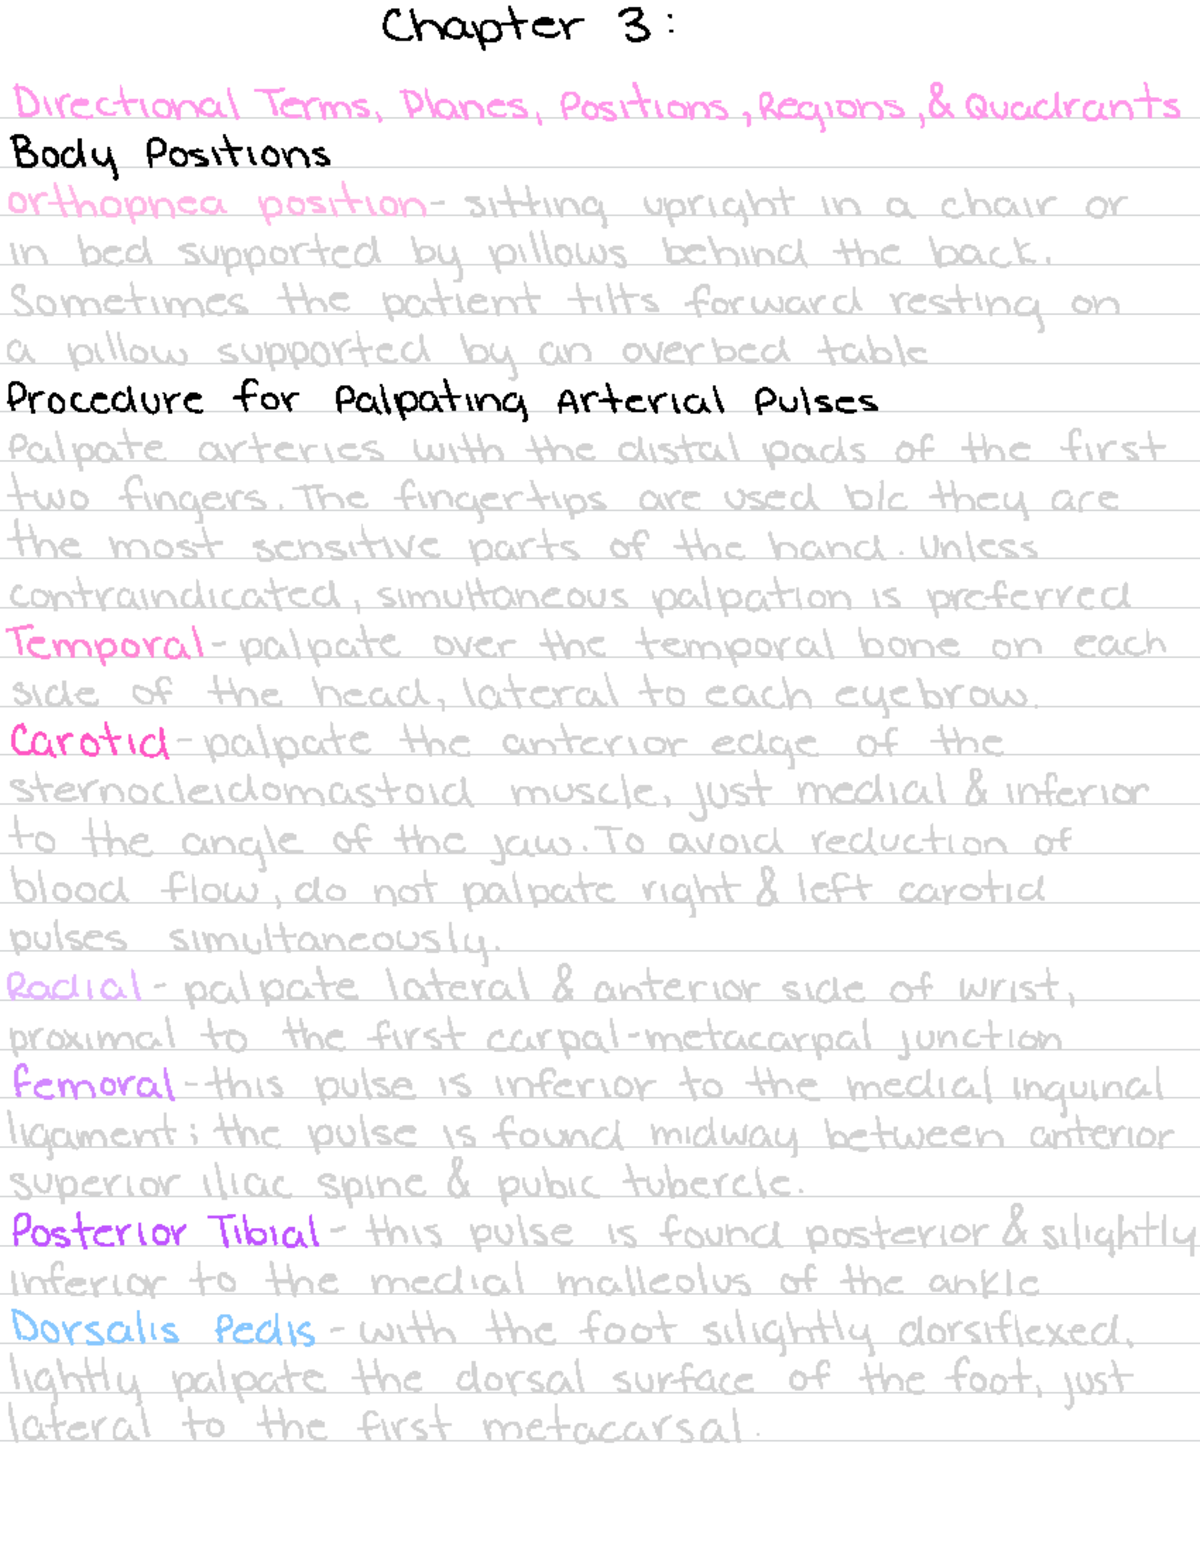 Chapter 3:
Directional Terms, Planes, Positions, Regions, & Quadrants
Body Positions
orthopnea position- sitting upright in a chair or
in bed supported by pillows behind the back.
Sometimes the patient tilts forward resting on
a pillow supported by an overbed table
Procedure for Palpating Arterial Pulses
Palpate arteries with the distal pads of the first
two fingers. The fingertips are used b/c they are
the most sensitive parts of the hand. Unless
contraindicated, simultaneous palpation is preferred
Temporal- palpate over the temporal bone on each
side of the head, lateral to each eyebrow.
Carotid- palpate the anterior edge of the
sternocleidomastoid muscle, just medial & inferior
to the angle of the jaw. To avoid reduction of
blood flow, do not palpate right & left carotid
pulses simultaneously.
Radial- palpate lateral & anterior side of wrist,
proximal to the first carpal-metacarpal junction
Femoral- this pulse is inferior to the medial inguinal
ligament; the pulse is found midway between anterior
superior iliac spine & pubic tubercle.
Posterior Tibial- this pulse is found posterior & silightly
inferior to the medial malleolus of the ankle
Dorsalis Pedis- with the foot silightly dorsiflexed,
lightly palpate the dorsal surface of the foot, just
lateral to the first metacarsal.